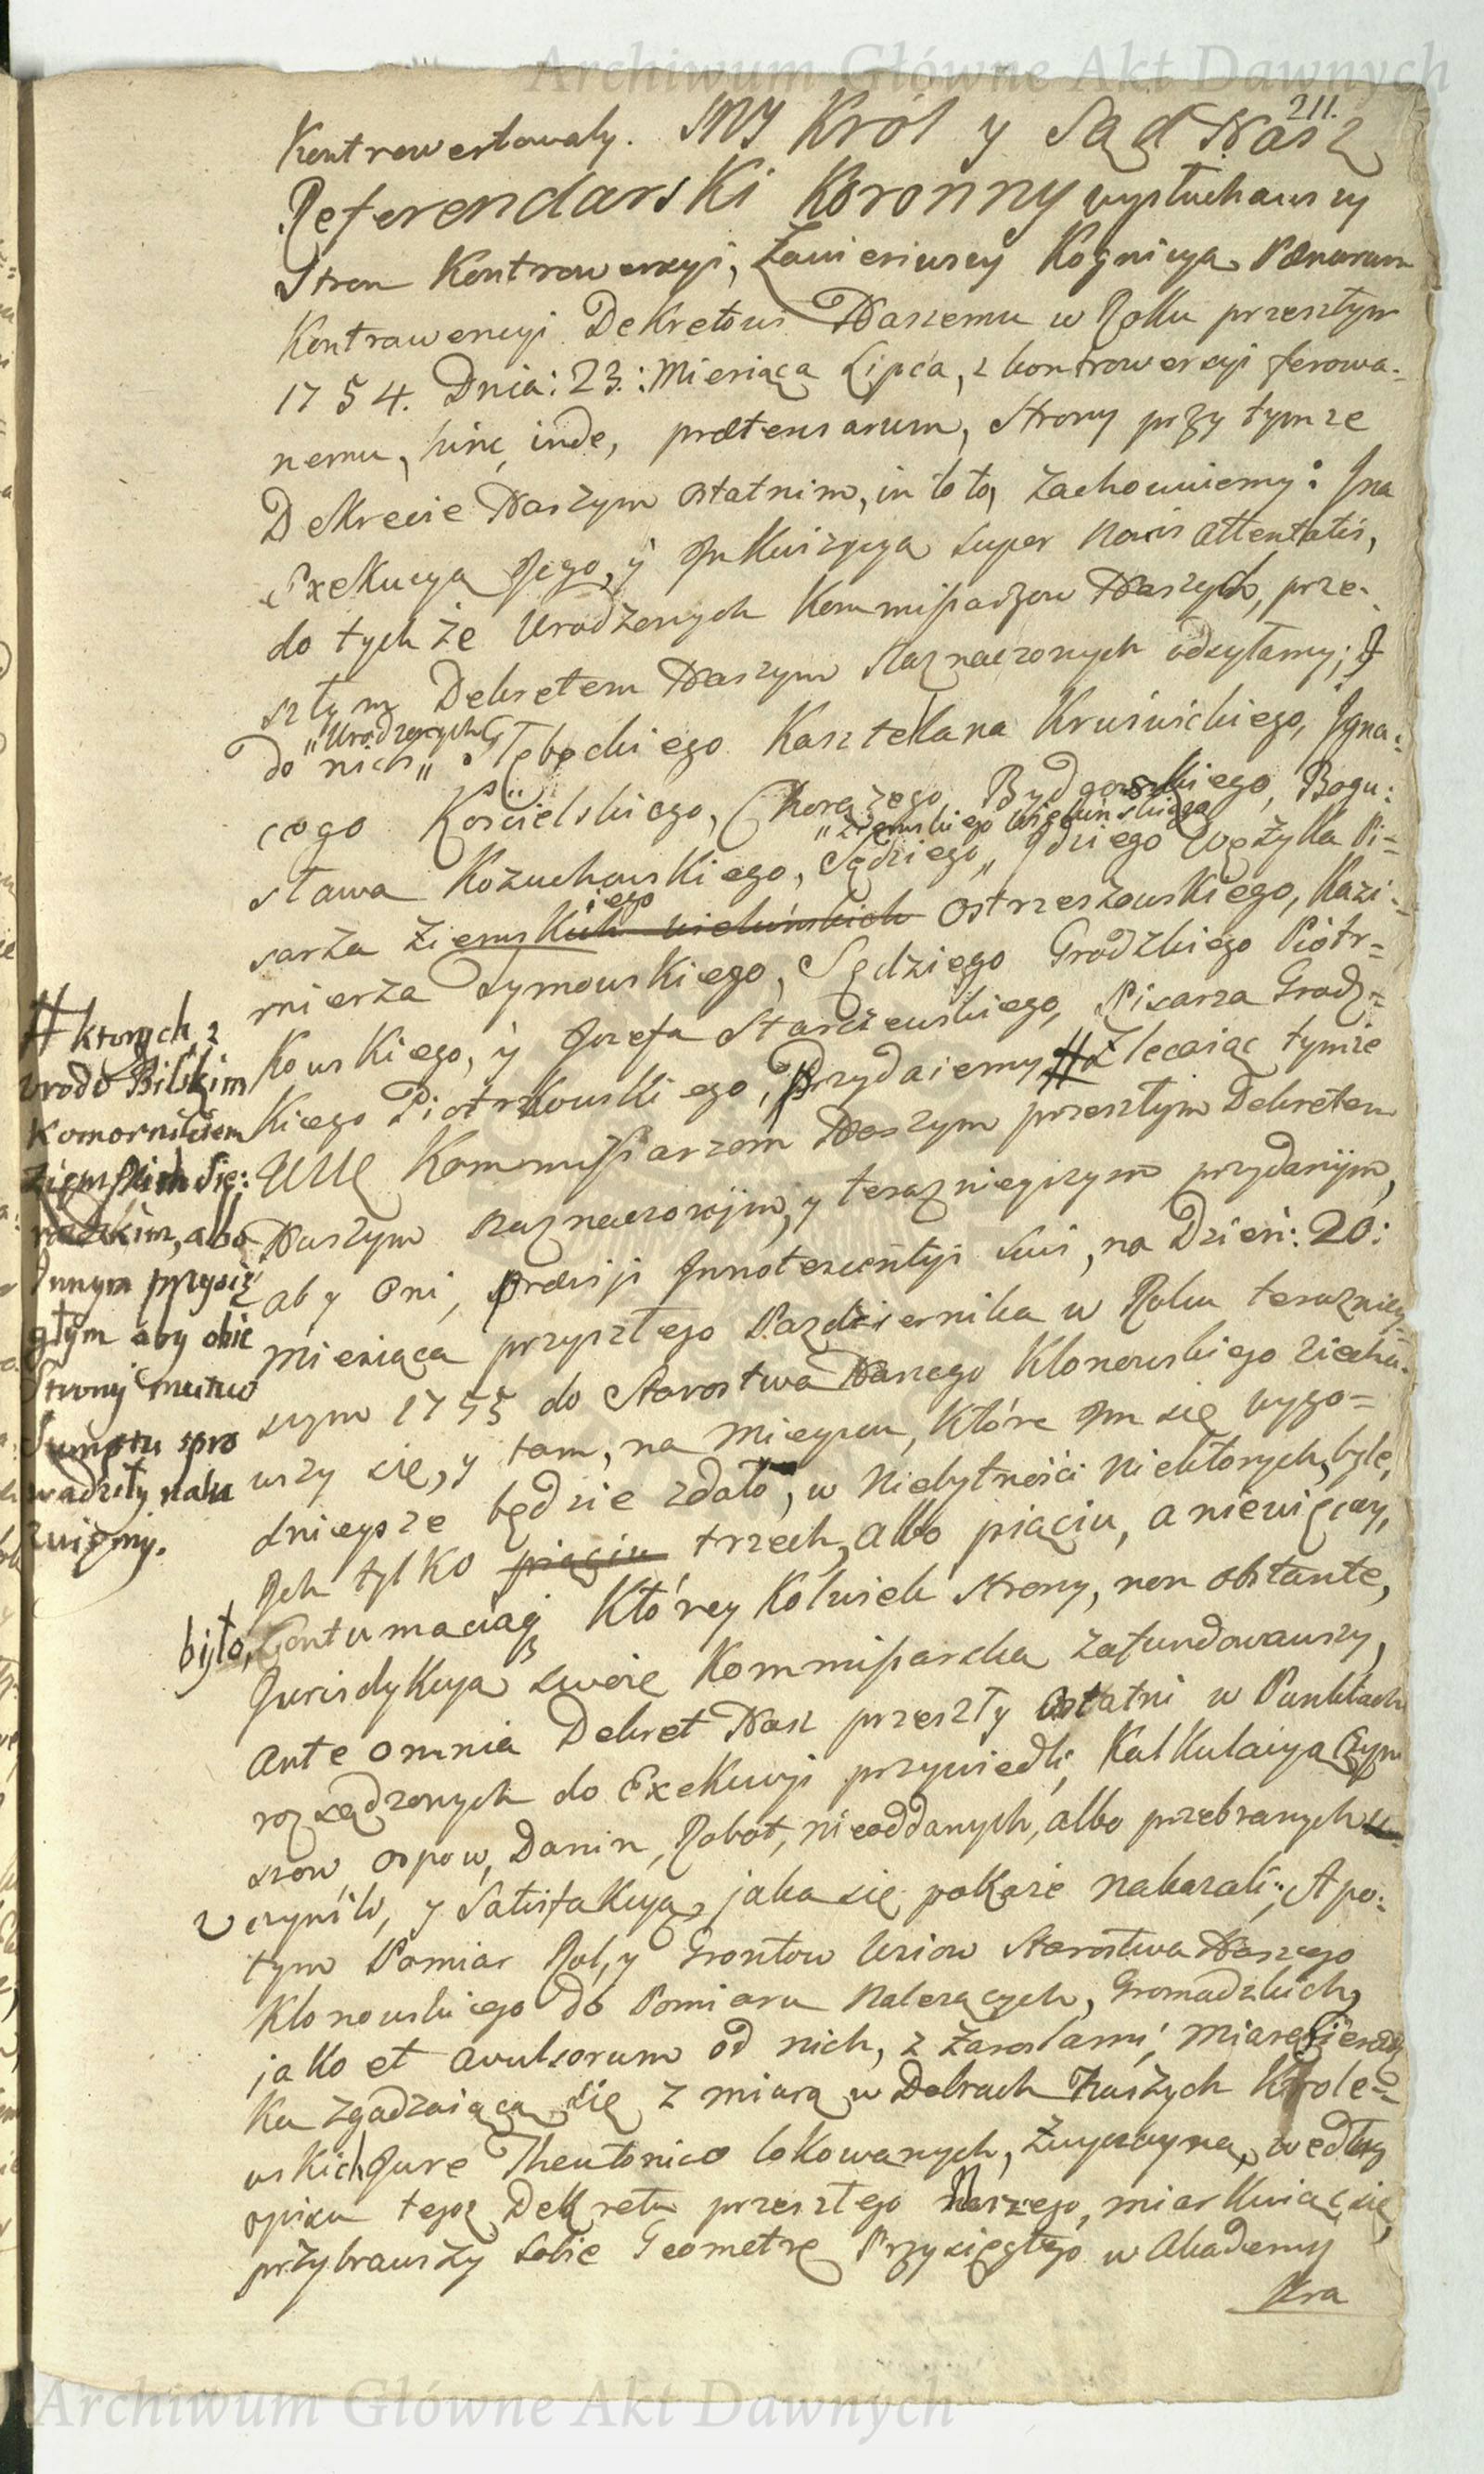 Archiwum Główne Akt Dawnych
211.
Kontrowertowały. MY Król y Sąd Nasz
Referendarski Koronny wysłuchawszy
Stron Kontrowersyi, Zawieriwszy Kognicyą Pænarum
Kontrawencyi Dekretowi Naszemu w Roku przeszłym
1754. Dnia: 23.: Miesiąca Lipca, z kontrowersyi ferowa=
nemu, hinc inde, prætensarum, Strony przy tymże
Dekrecie Naszym ostatnim, in toto, zachowuiemy: Jna
Exekucyą Jego, y Jnkwizycyą super novis attentatis,
do tychże Urodzonych Kommissarzow Naszych, prze=
szłym Dekretem Naszym Naznaczonych odsyłamy; J
do nich „Urodzonych„ Kasztelana Kruświckiego, Jgna=
cego Kościelskiego, Chorążego Bydgoskiego, Bogu:
sława Kożuchowskiego, Sędziego „Ziemskiego Wieluńskiego„ Jdziego Wężyka Pi=
sarza Ziemskiego wieluńskich Ostrzeszowskiego, Kazi=
mierza Dymowskiego, Sędziego Grodzkiego Piotr=
kowskiego, y Jozefa Starczewskiego, Pisarza Grodz=
kiego Piotrkowskiego, Przydaiemy # Zlecaiąc tymże
UUr Kommissarzom Naszym przeszłym Dekretem
Naszym naznaczonym, y teraznieyszym przydanym,
aby Oni, prævij Jnnotescentyi sui, na Dzień: 20:
Miesiąca przyszłego Pazdziernika w Roku teraznięy=
szym 1755 do Starostwa Naszego Klonowskiego ziechaw=
wszy się, y tam, na mieyscu, które Jm się wygo=
dnieysze będzie zdało, w niebytności niektorych, byle
Jch tylko piąciu trzech, albo piąciu, a niewięcey,
było, Contumacią Którey kolwiek strony, non obstante,
Jurisdykcyą swoię Kommissarską zafundowawszy,
ante omnia Dekret Nasz przeszły ostatni w Punktach
rozsądzonych do Exekucyi przywiedli, Kalkulacyą Czyn
szow, Ospow, Danin, Robot, nieoddanych, albo przebranych
uczynili, y Satisfakcyą, jaka się pokaże nakazali; A po=
tym Pomiar Rol, y Grontow Wsiow Starostwa Naszego
Klonowskiego do Pomiaru Należących, Gromadzkich,
jako et avulsorum od nich, z Zaroslami, miarę Sieradz
ką zgadzaiącą się z miarą w Dobrach Naszych Krole=
wskich Jure Theutonico lokowanych, zwyczayną, według
opisu tegoż Dekretu przeszłego Naszego, miarkuiąc się,
przybrawszy sobie Geometrę Przysięgłego w Akademyi
Kra
# ktorych z
Urodz Bilskim
Komornikiem
Ziemskim Się:
radzkim, albo
Jnnym przysię
głym aby obie
Strony mutuo
Sumptu spro
wadziły naka
zuiemy.
Archiwum Główne Akt Dawnych